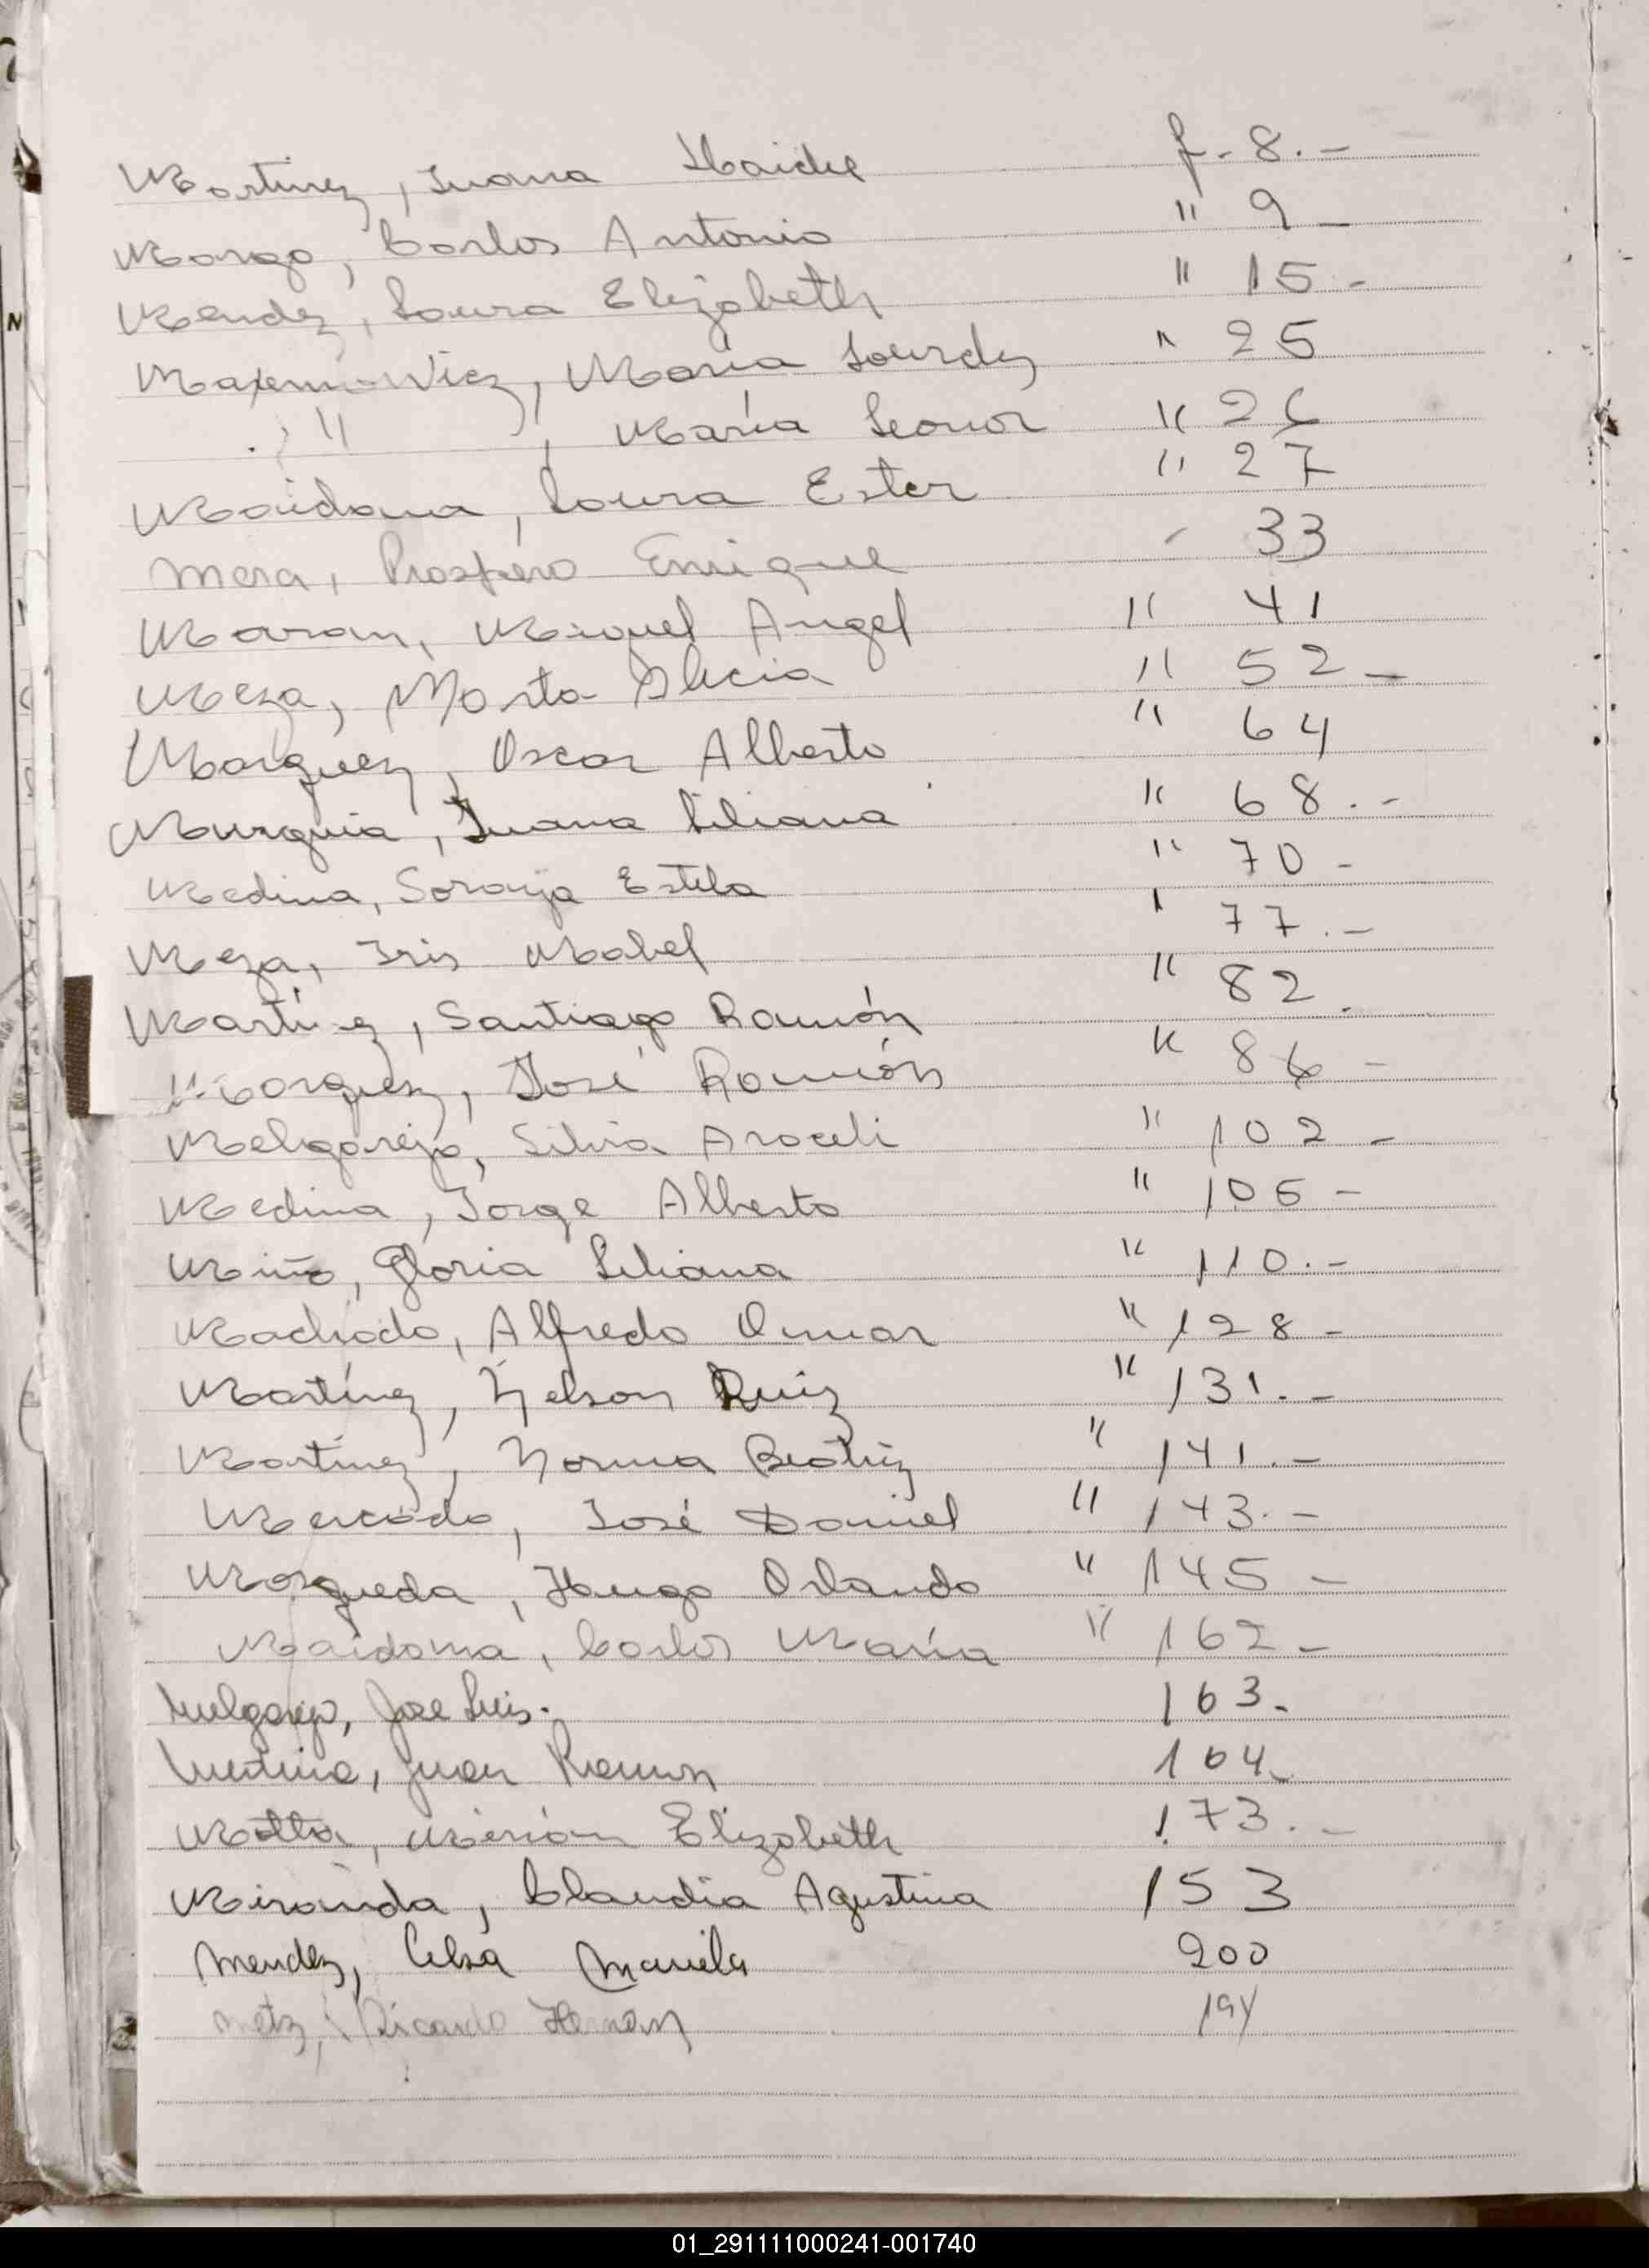 Martinez, Juana Haidee f. 8.-
Mongo, Carlos Antonio " 9 -
Mendez, Laura Elizabeth " 15.-
Maxemowicz, María Lourdes " 25
" , María Leonor " 26
Maidana, Laura Ester " 27
Mera, Prospero Enrique 33
Moran, Miguel Angel " 41
Meza, Marta Alicia " 52 -
Marquez, Oscar Alberto " 64
Murguia, Juana Liliana " 68.-
Medina, Soraya Estela " 70 -
Meza, Iris Mabel " 77.-
Martínez, Santiago Ramón " 82.
Marquez, José Ramón " 86 -
Melgarejo, Silvia Araceli " 102 -
Medina, Jorge Alberto " 105 -
Miño, Gloria Liliana " 110.-
Machado, Alfredo Omar " 128 -
Martínez, Nelson Ruiz " 131.-
Martínez, Norma Beatriz " 141.-
Mercado, José Daniel " 143.-
Mosqueda, Hugo Orlando " 145 -
Maidana, Carlos María " 162 -
Melgarejo, Jose Luis. 163.
Medina, Juan Ramon 164.
Motta, Mirian Elizabeth 173.-
Miranda, Claudia Agustina 153
Mendez, Celsa Mariela 200
Metz, Ricardo Hernan 194
01_291111000241-001740